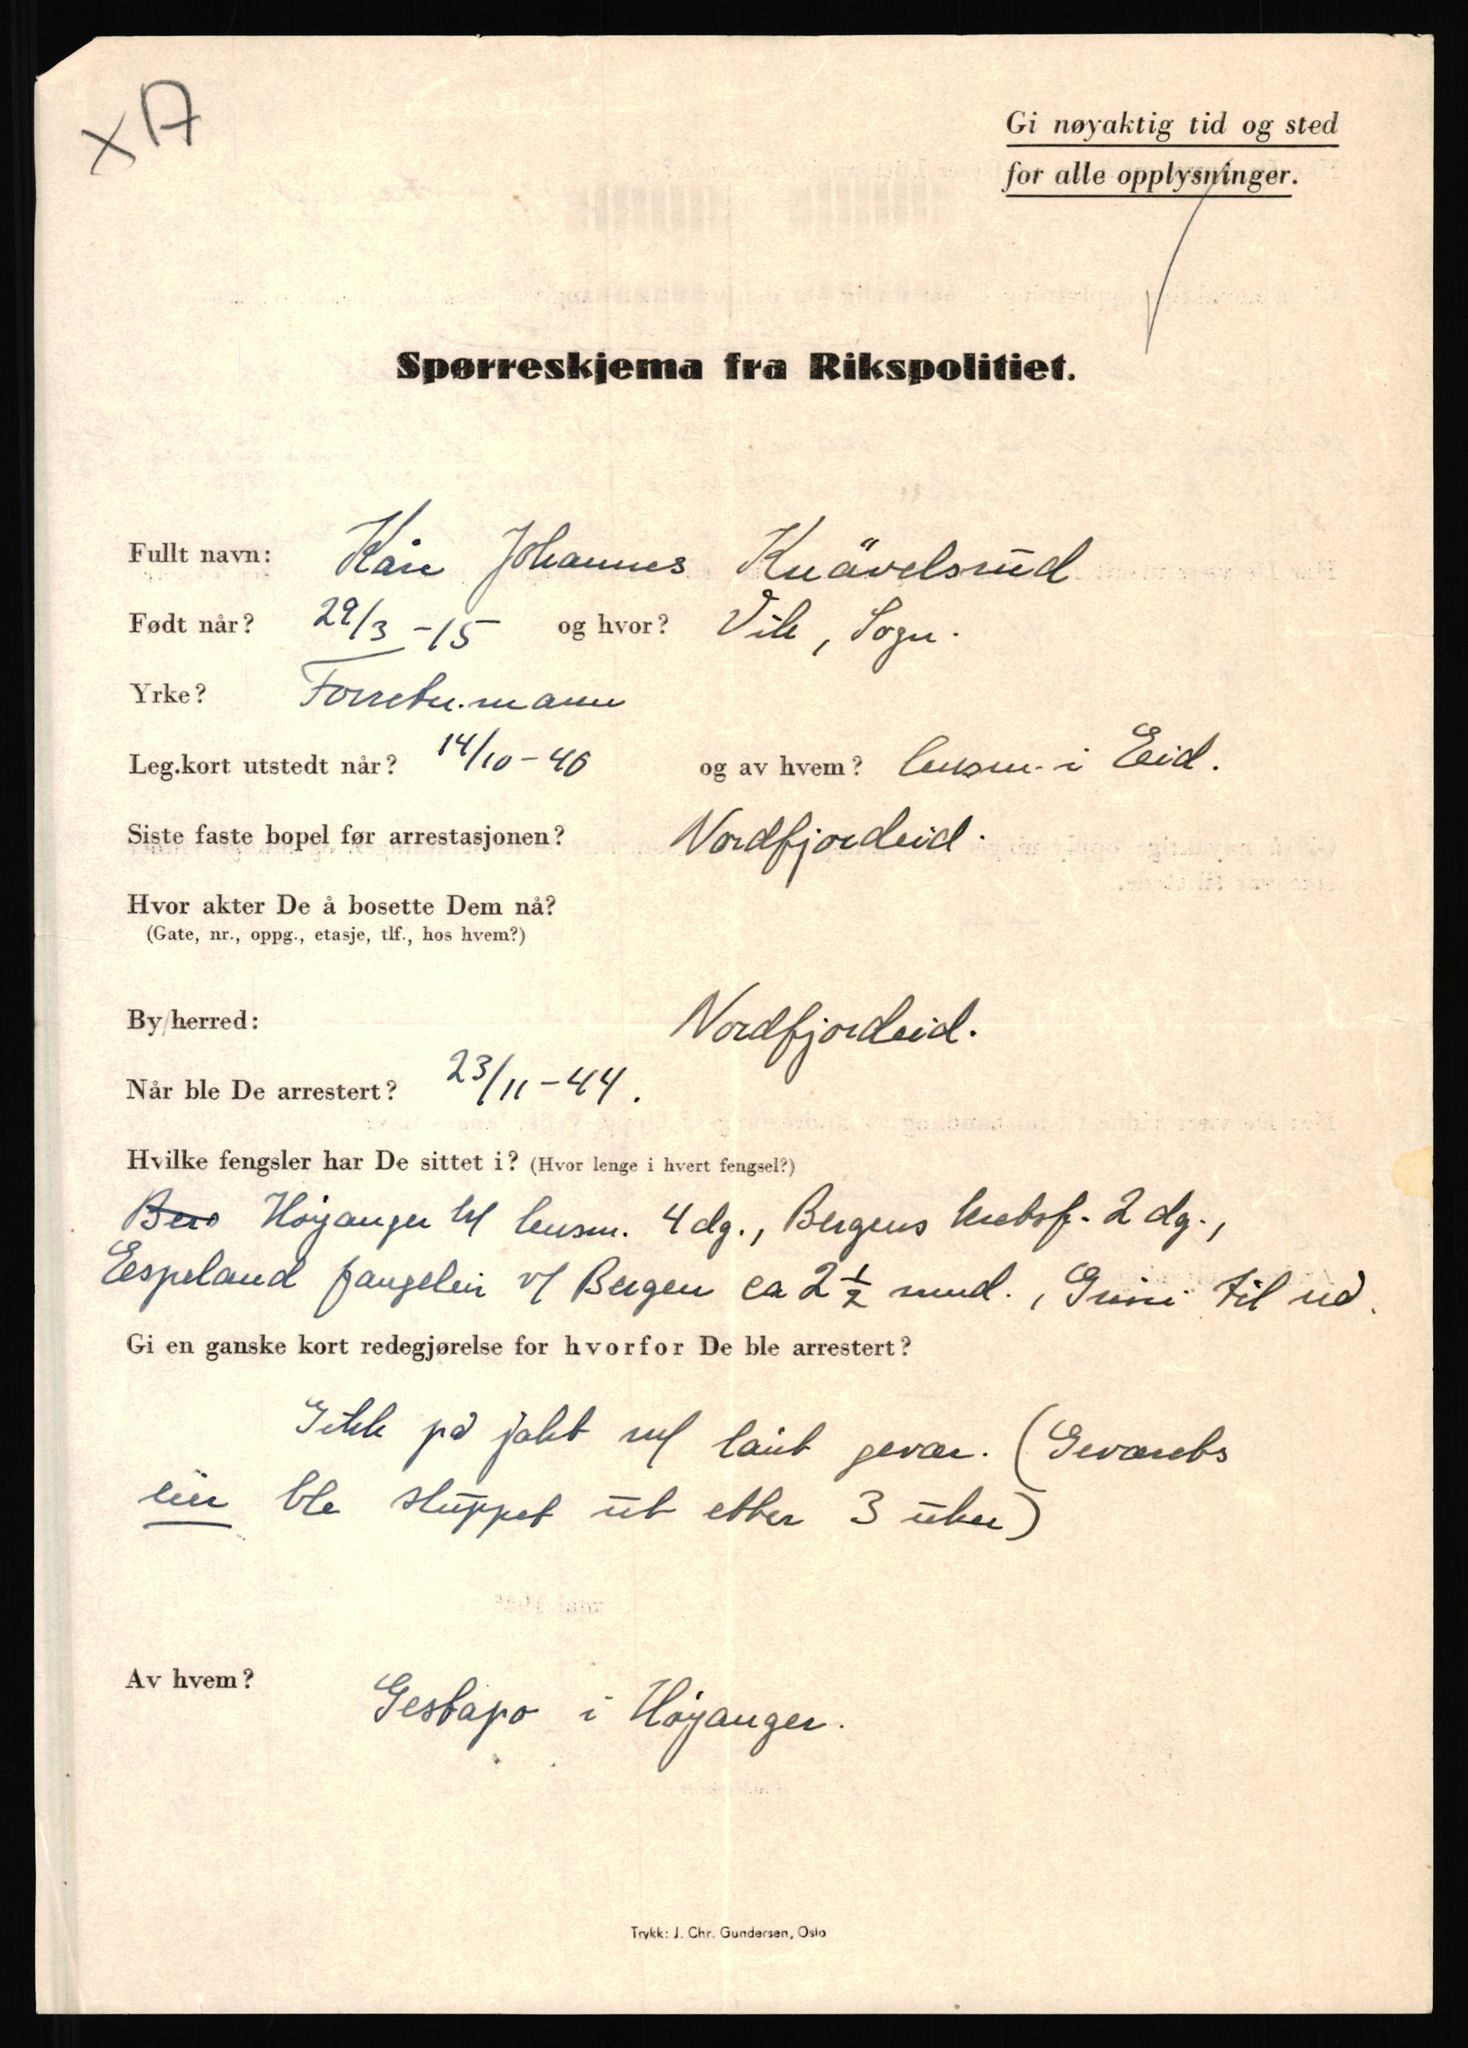 xA
Gi nøyaktig tid og sted
for alle opplysninger.
Spørreskjema fra Rikspolitiet.
Fullt navn: Kåre Johannes Knävelsrud
Født når? 29/3 -15 og hvor? Vik, Sogn.
Yrke? Forretn.mann
Leg.kort utstedt når? 14/10-40 og av hvem? lensm. i Eid.
Siste faste bopel før arrestasjonen? Nordfjordeid.
Hvor akter De å bosette Dem nå?
(Gate, nr., oppg., etasje, tlf., hos hvem?)
By/herred: Nordfjordeid.
Når ble De arrestert? 23/11-44.
Hvilke fengsler har De sittet i? (Hvor lenge i hvert fengsel?)
Høyanger lensm. 4 dg., Bergens kretsf. 2 dg.,
Espeland fangeleir v/ Bergen ca 2 1/2 mnd., Grini til nå.
Gi en ganske kort redegjørelse for hvorfor De ble arrestert?
Gikk på jakt m/ lånt gevær. (Geværets
eier ble sluppet ut etter 3 uker)
Av hvem? Gestapo i Høyanger.
Trykk: J. Chr. Gundersen, Oslo